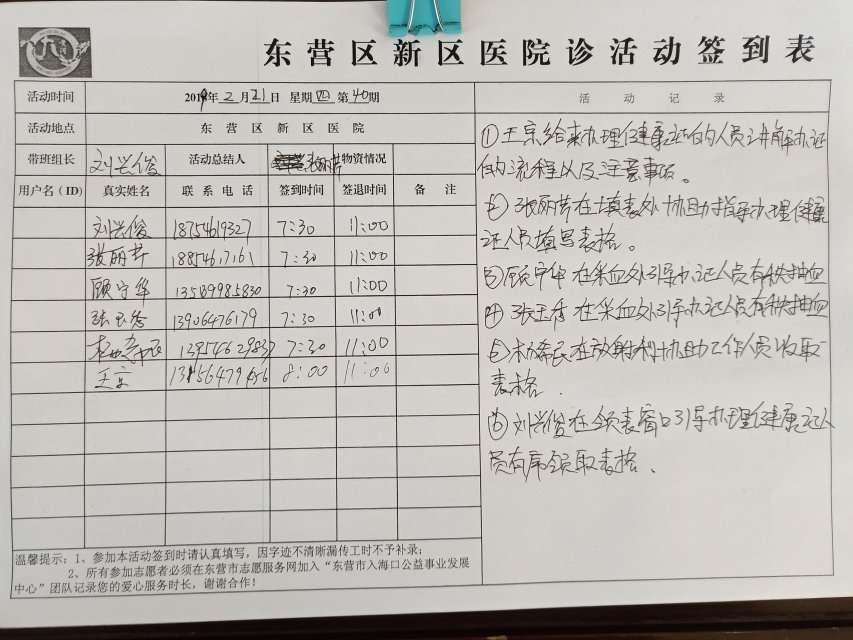 东营区新区医院诊活动签到表
活动时间 2019年2月21日 星期四 第40期 活动记录
活动地点 东营区新区医院
带班组长 刘兴俊 活动总结人 张丽芹 物资情况
用户名(ID) 真实姓名 联系电话 签到时间 签退时间 备注
刘兴俊 18754619327 7:30 11:00
张丽芹 18854617161 7:30 11:00
顾守华 7:30 11:00
张玉秀 13906476179 7:30 11:00
7:30 11:00
王京 8:00 11:00
①王京给来办理健康证的人员讲解办证
的流程以及注意事项。
②张丽芹在填表处协助指导办理健康
证人员填写表格。
③顾守华在采血处引导办证人员有秩抽血
④张玉秀在采血处引导办证人员有秩抽血
⑤ 在放射科协助工作人员收取
表格.
⑥刘兴俊在领表窗口引导办理健康证人
员有序领取表格.
温馨提示：1、参加本活动签到时请认真填写，因字迹不清晰漏传工时不予补录；
2、所有参加志愿者必须在东营市志愿服务网加入“东营市入海口公益事业发展
中心”团队记录您的爱心服务时长，谢谢合作！